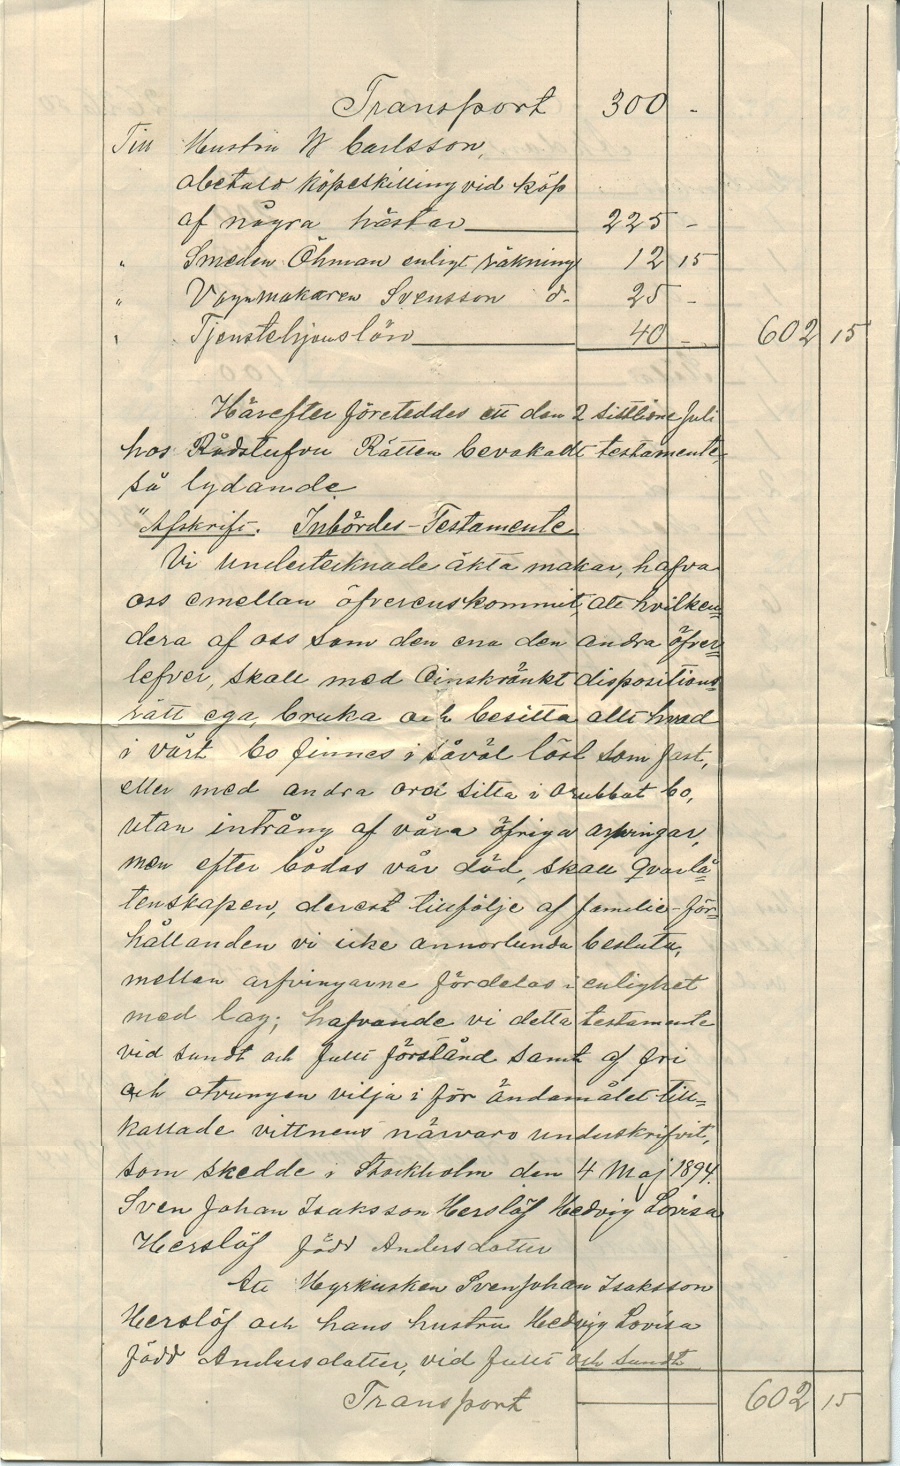 Transport 300 -
Till Hustru W Carlsson,
obetald köpeskilling vid köp
af några hästar 225 -
" Smeden Öhman enligt räkning 12 15
" Vagnmakaren Svensson d- 25 -
" Tjenstehjonslön 40 - 602 15
Härefter företeddes ett den 2 sistlidne Juli
hos Rådstufvu Rätten bevakadt testamente,
så lydande
"Afskrift. Inbördes-Testamente
Vi undertecknade äkta makar, hafva
oss emellan öfverenskommit, att hvilken=
dera af oss som den ena den andra öfver=
lefver, skall med oinskränkt dispositions=
rätt ega, bruka och besitta allt hvad
i vårt bo finnes i såväl löst som fast,
eller med andra ord sitta i orubbat bo,
utan intrång af våra öfriga arfvingar,
men efter bådas vår död, skall qvarlå=
tenskapen, derest tillfölje af familie-för=
hållanden vi icke annorlunda besluta,
mellan arfvingarne fördelas i enlighet
med lag; hafvande vi detta testamente
vid sundt och fullt förstånd samt af fri
och otvungen vilja i för ändamålet till=
kallade vittnens närvaro underskrifvit,
som skedde i Stockholm den 4 Maj 1894.
Sven Johan Isaksson Herslöf Hedvig Lovisa
Herslöf född Andersdotter
Att Hyrkusken Sven Johan Isaksson
Herslöf och hans hustru Hedvig Lovisa
född Andersdotter, vid fullt och sundt
Transport 602 15